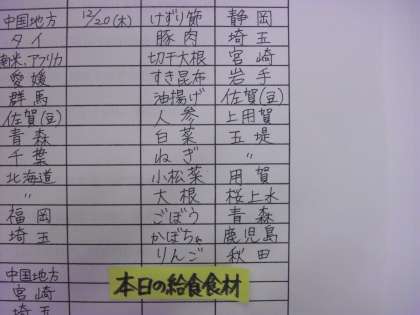 中国地方 12/20(木) けずり節 静岡
タイ 豚肉 埼玉
南米、アフリカ 切干大根 宮崎
愛媛 すき昆布 岩手
群馬 油揚げ 佐賀(豆)
佐賀(豆) 人参 上用賀
青森 白菜 五堤
千葉 ねぎ 〃
北海道 小松菜 用賀
〃 大根 桜上水
福岡 ごぼう 青森
埼玉 かぼちゃ 鹿児島
りんご 秋田
中国地方
宮崎
埼玉
本日の給食食材